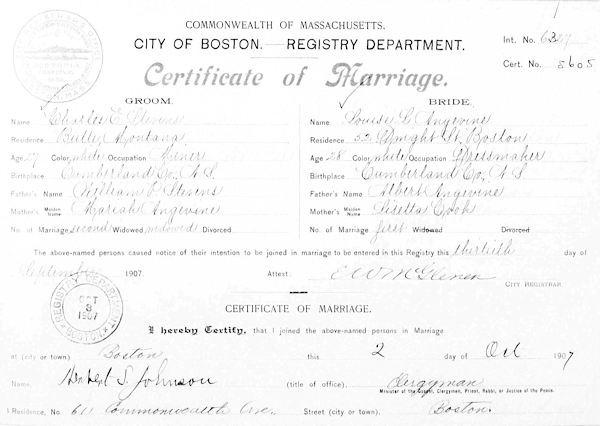 COMMONWEALTH OF MASSACHUSETTS.
CITY OF BOSTON.—REGISTRY DEPARTMENT.
Int. No. 6327
Cert. No. 5605
Certificate of Marriage.
GROOM. BRIDE.
Name Charles E. Stevens Name Louise L. Angevine
Residence Butte, Montana Residence 52 Dwight St. Boston
Age, 27 Color, white Occupation Miner Age 28 Color, white Occupation Dressmaker
Birthplace Cumberland Co., N.S. Birthplace Cumberland Co., N.S.
Father's Name William Stevens Father's Name Albert Angevine
Mother's Maiden Name Mariah Angevine Mother's Maiden Name Lisetta Cook
No. of Marriage second Widowed widowed Divorced No. of Marriage first Widowed Divorced
The above-named persons caused notice of their intention to be joined in marriage to be entered in this Registry this thirtieth day of
September 1907. Attest: E W McGlenen
CITY REGISTRAR
REGISTRY DEPARTMENT BOSTON.
OCT
3
1907
CERTIFICATE OF MARRIAGE.
I hereby Certify, that I joined the above-named persons in Marriage
at (city or town) Boston this 2 day of Oct 1907
Name, Herbert S. Johnson (title of office), Clergyman
Minister of the Gospel, Clergyman, Priest, Rabbi, or Justice of the Peace.
Residence, No. 611 Commonwealth Ave. Street (city or town), Boston.